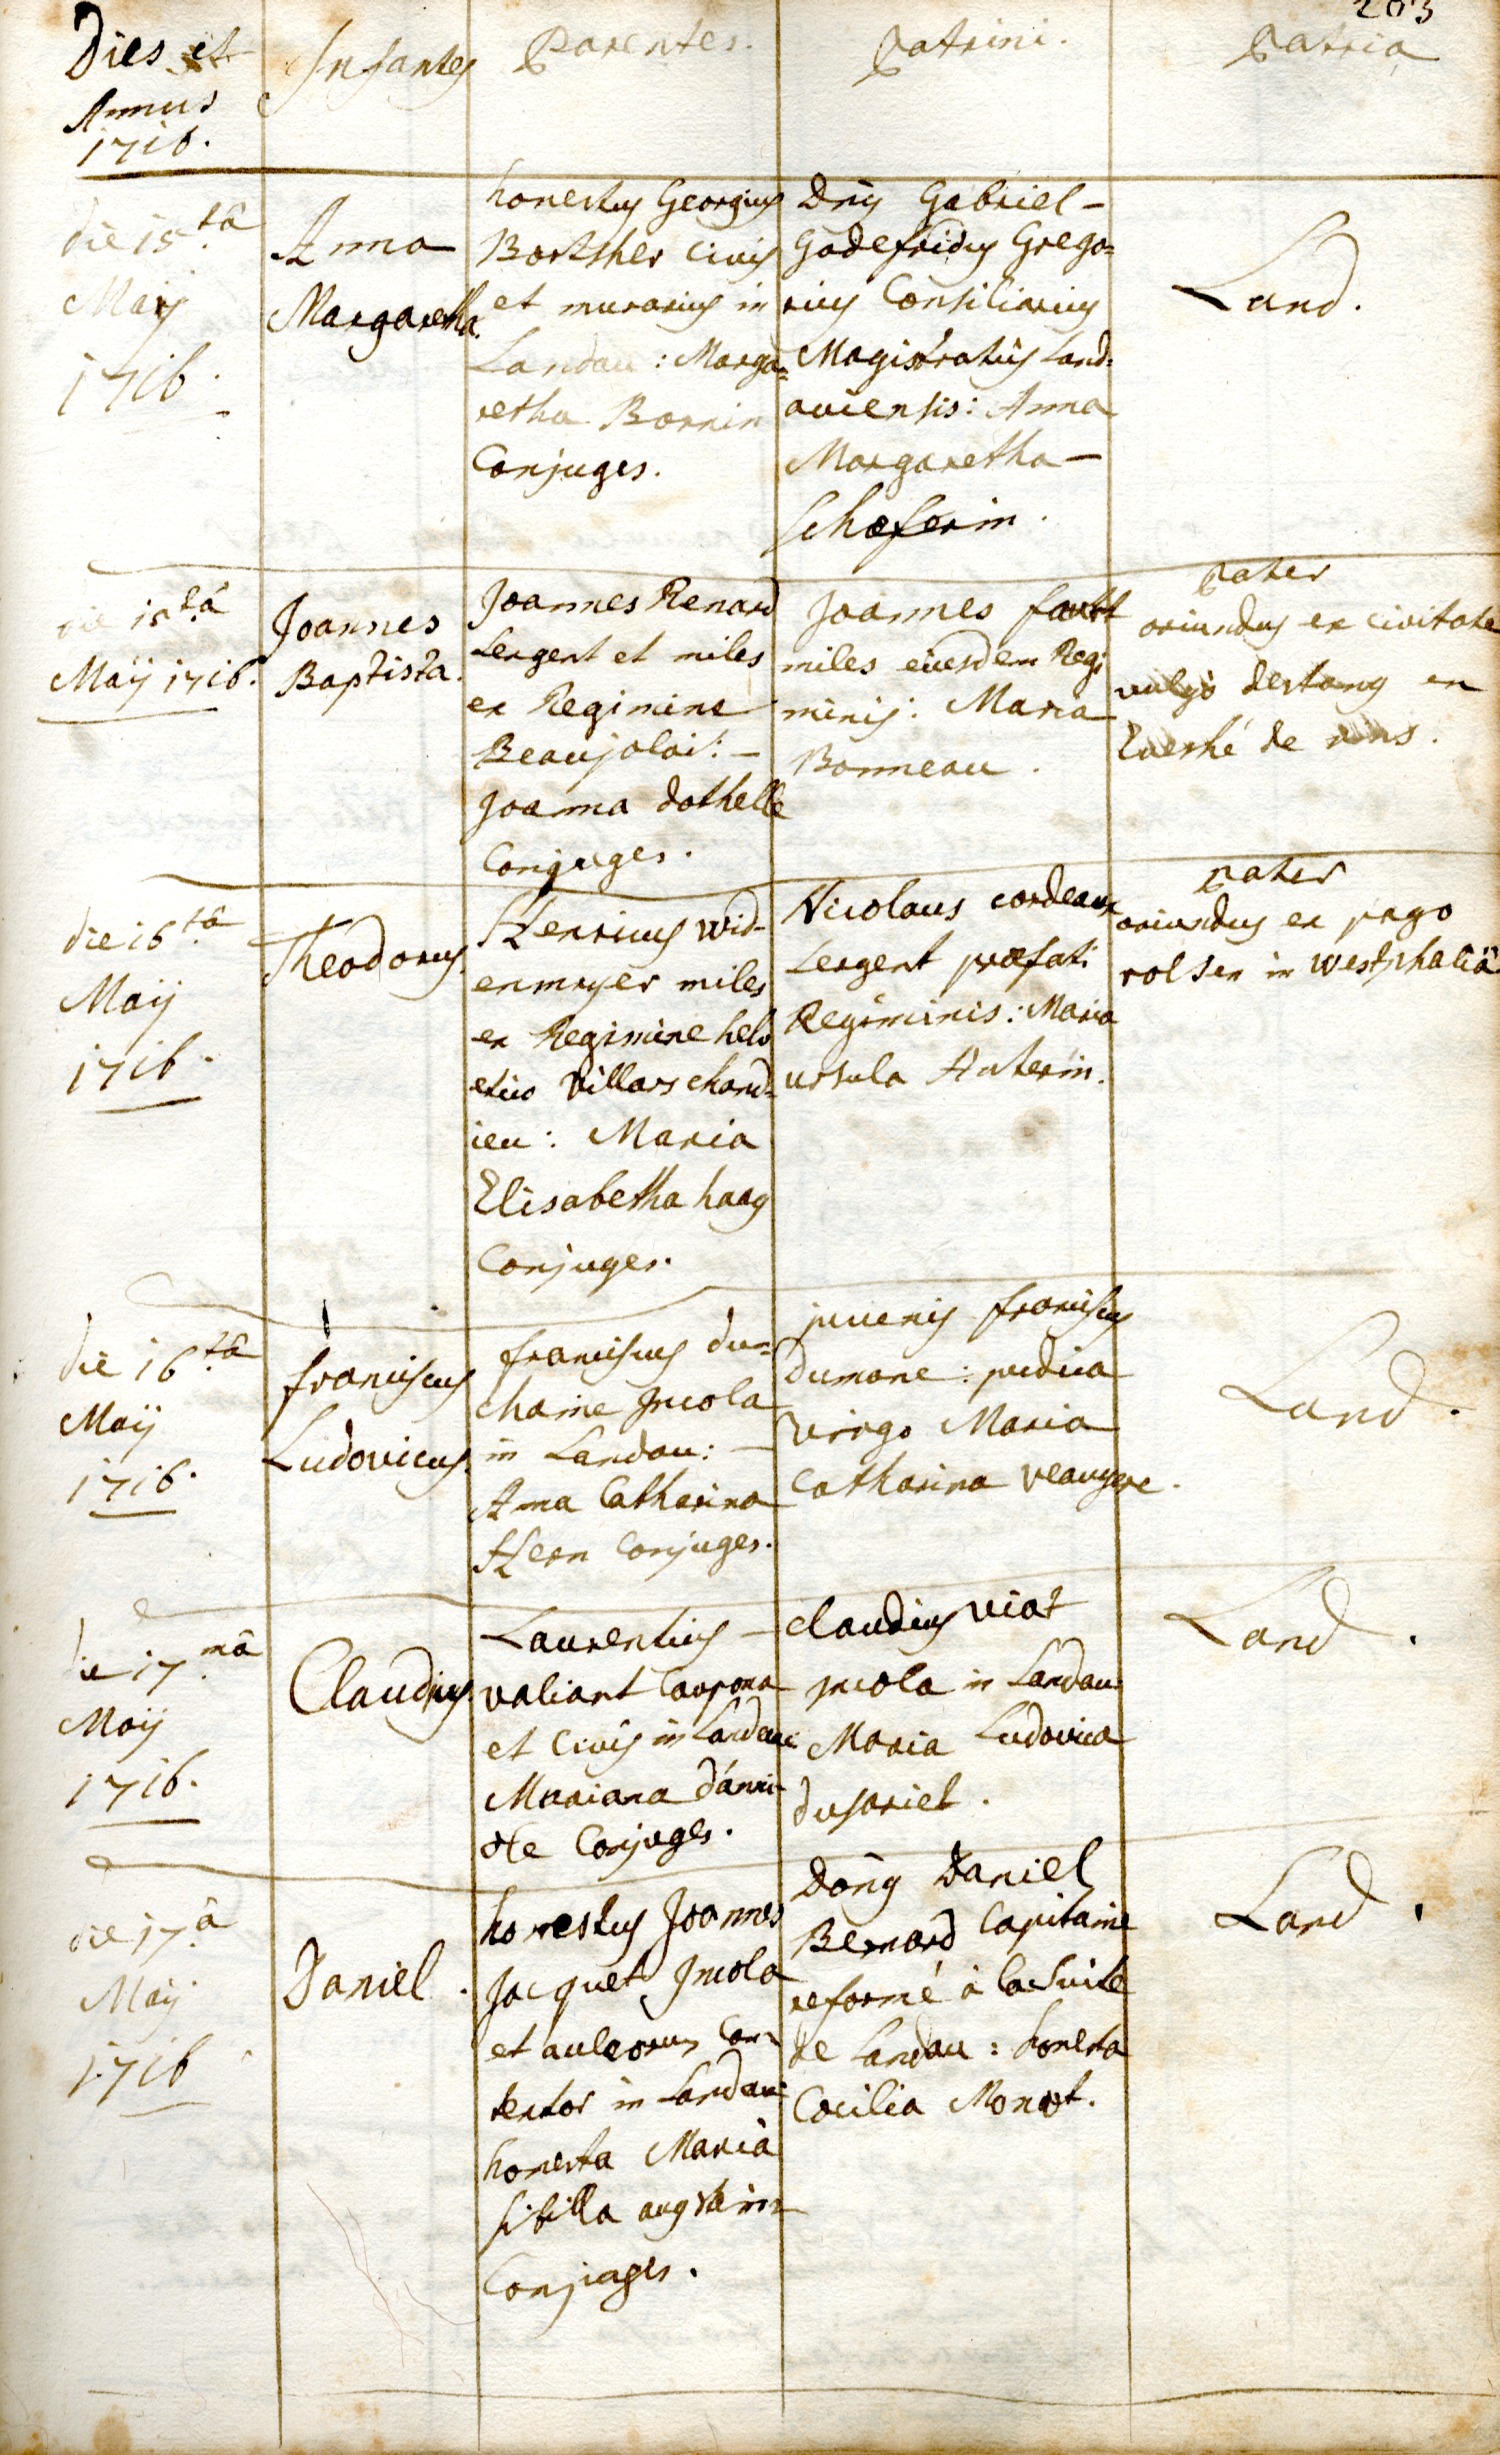 203
Dies et
Annus
1716.
Infantes
Parentes.
Patrini.
Patria
die 15.tâ
Maÿ
1716.
Anna
Margaretha.
honestus Georgius
Bortsher Civis
et murarius in
Landau : Marga=
retha Bornin
Conjuges.
Dn̄s Gabriel –
Godefridus Grego=
rius Consiliarius
Magistratûs Land=
auiensis: Anna
Margaretha –
Schæferin.
Land.
die 15.tâ
Maÿ 1716.
Joannes
Baptista.
Joannes Renard
Sergent et miles
ex Regimine
Beaujolai: –
Joanna dothelle
Conjuges.
Joannes
miles eiusdem Regi
minis: Maria
Bonneau.
pater
oriundus ex civitate
vulgò destang en
Evesché de
die 16.tâ
Maij
1716.
Theodorus
Henricus wid-
enmeyer miles
ex Regimine helv
etico Villars chand=
ieu: Maria
Elisabetha haag
Conjuges.
Nicolaus cordeaux
Sergent præfati
Regiminis: Maria
ursula Huterin.
pater
oriundus ex pago
rolsen in westphaliâ
die 16.tâ
Maij
1716.
franciscus
Ludovicus.
franciscus du=
chaine Incola
in Landau: –
Anna Catharina
Kern Conjuges.
juuenis franciscus
dumane : pudica
virgo Maria
Catharina veaugere.
Land.
die 17.mâ
Maij
1716.
Claudius
Laurentius –
valiant Caupona
et Civis in Landau:
Mariana d'anni-
Conjuges.
Claudius viat
Incola in Landau
Maria Ludovica
dusariet.
Land.
die 17.â
Maÿ
1716
Daniel.
honestus Joannes
Jacquet Incola
et auleorum Con=
tentor in Landau:
honesta Maria
Sibilla augstein=
Conjuges.
Doñs Daniel
Bernard Capitaine
reformé à la Suite
de Landau : honesta
Cæcilia Monot.
Land.